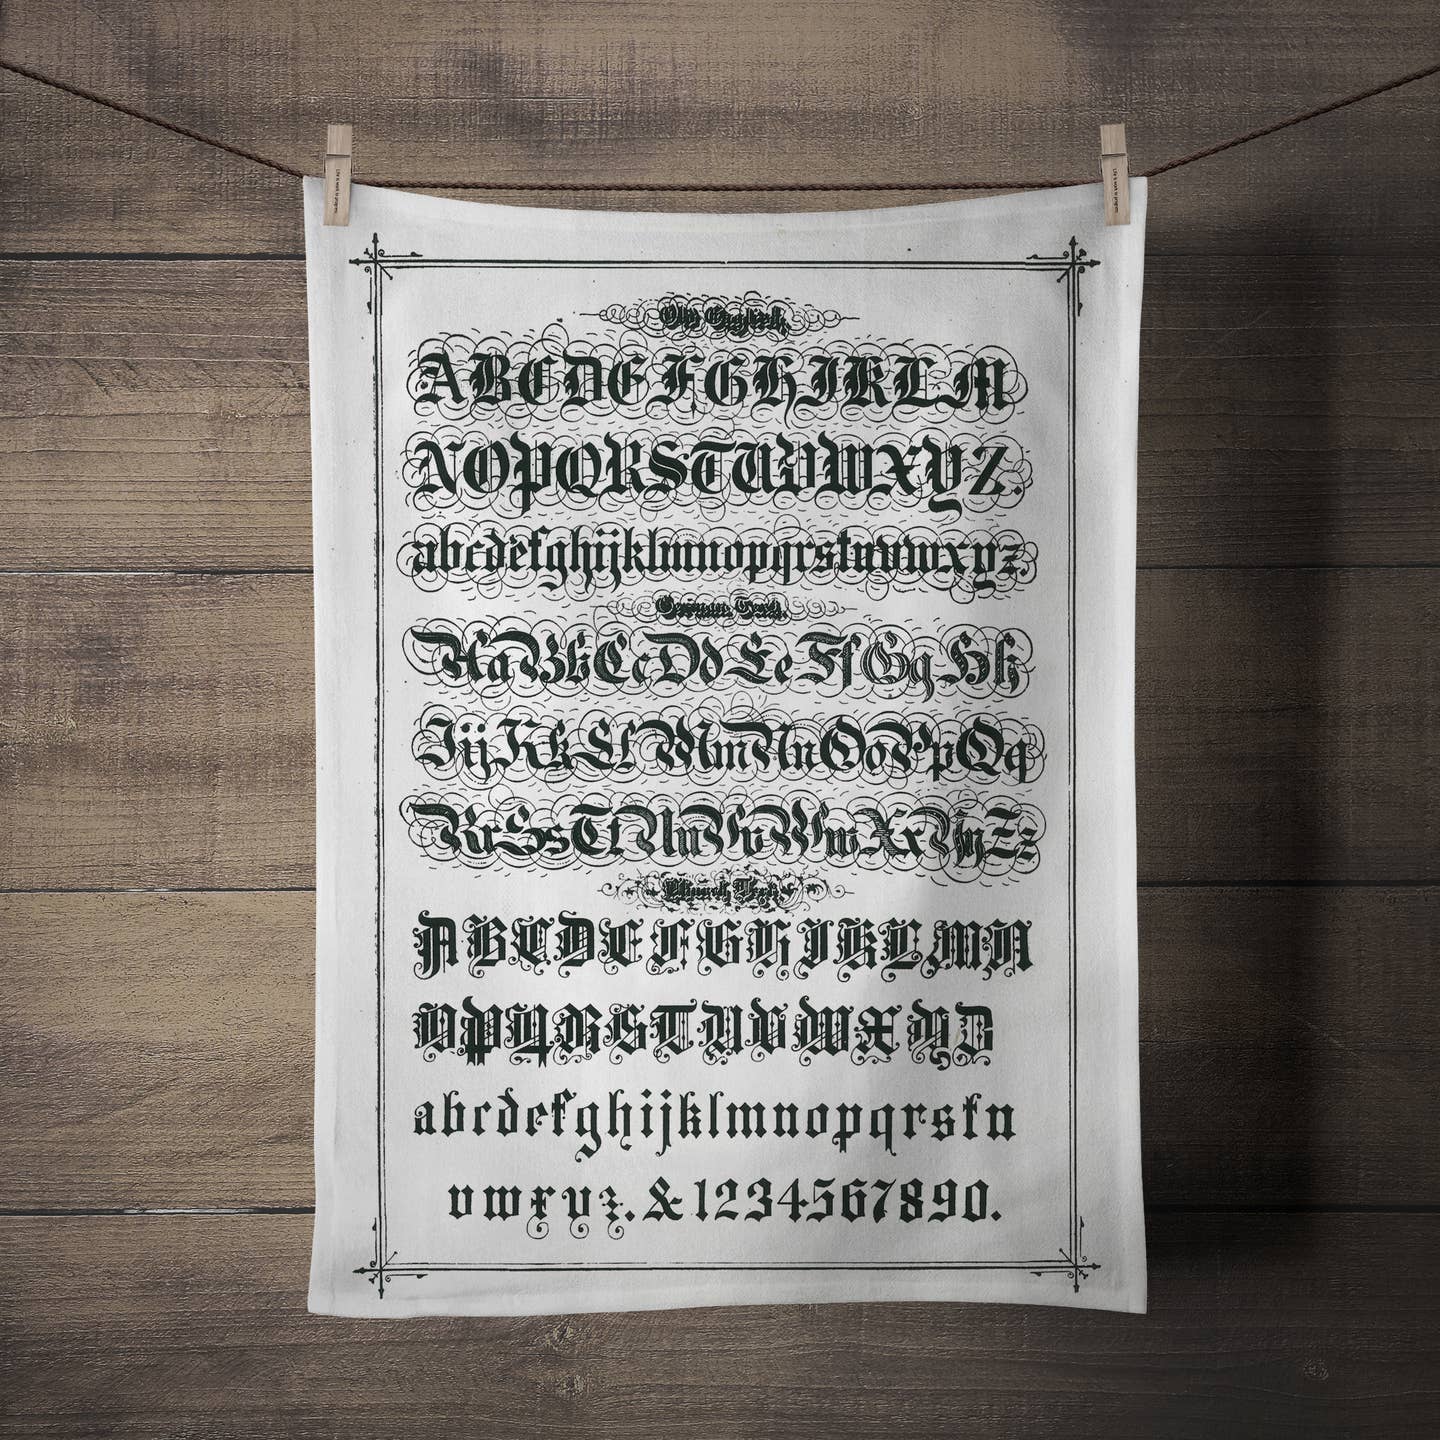 Old English.
ABCDEFGHIKLM
NOPQRSTUVWXYZ.
abcdefghijklmnopqrstuvwxyz.
German Text.
AaBbCcDdEeFfGgHh
IijKkLlMmNnOoPpQq
RrSsTtUuVvWwXxYyZz
Church Text
ABCDEFGHIKLMN
OPQRSTUVWXYZ
abcdefghijklmnopqrstu
vwxyz.&1234567890.